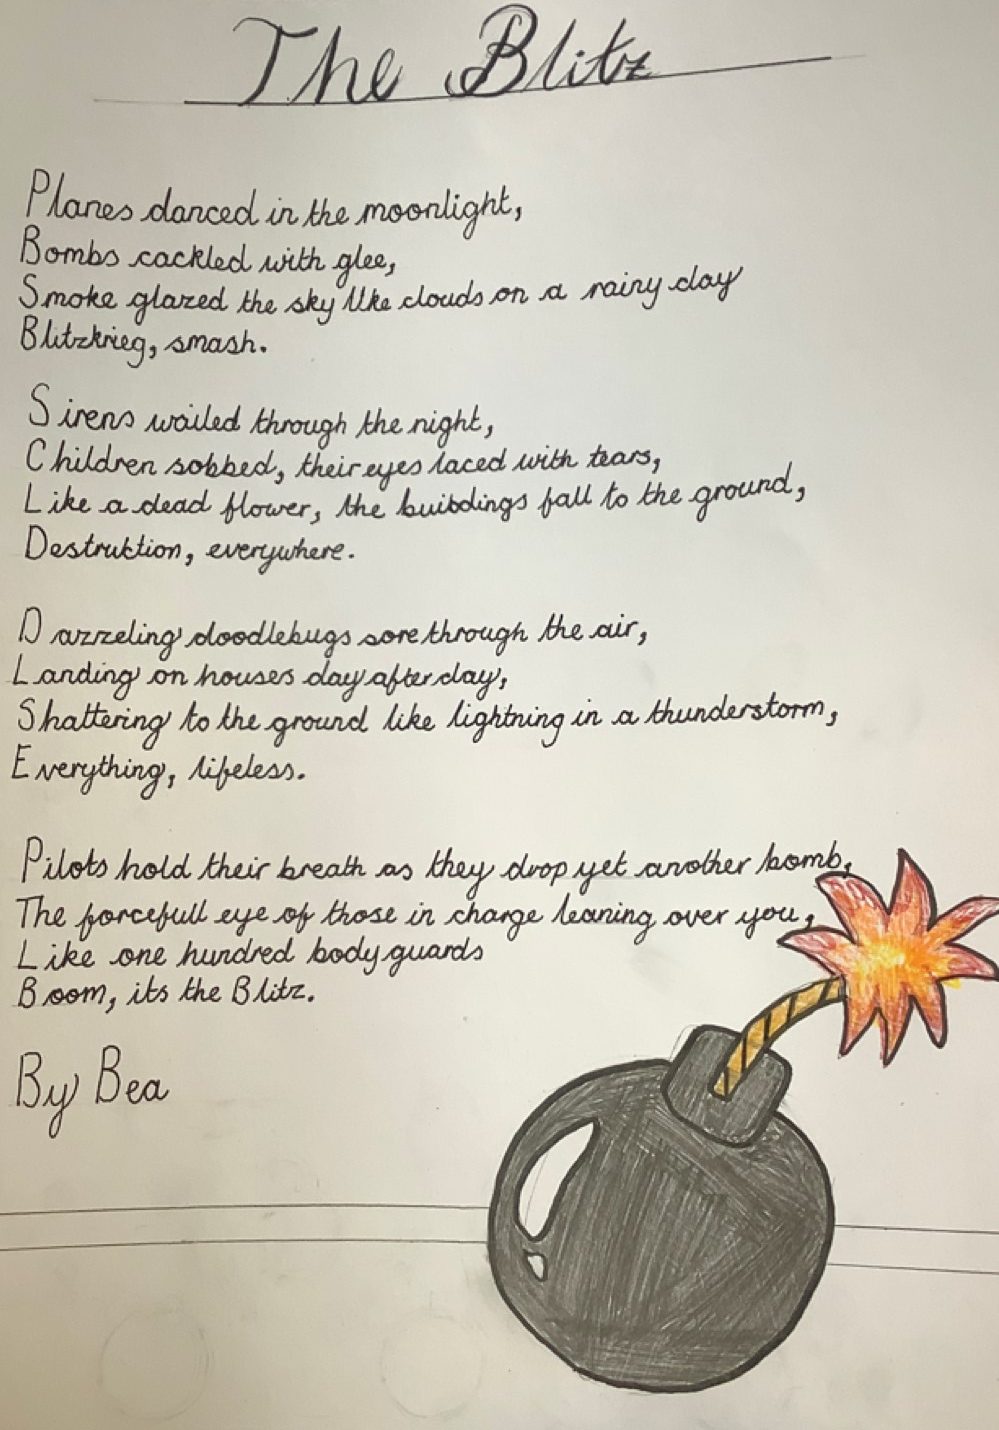 The Blitz
Planes danced in the moonlight,
Bombs cackled with glee,
Smoke glazed the sky like clouds on a rainy day
Blitzkrieg, smash.
Sirens wailed through the night,
Children sobbed, their eyes laced with tears,
Like a dead flower, the buildings fall to the ground,
Destruktion, everywhere.
Dazzeling doodlebugs sore through the air,
Landing on houses day after day,
Shattering to the ground like lightning in a thunderstorm,
Everything, lifeless.
Pilots hold their breath as they drop yet another bomb,
The forcefull eye of those in charge leaning over you,
Like one hundred body guards
Boom, its the Blitz.
By Bea